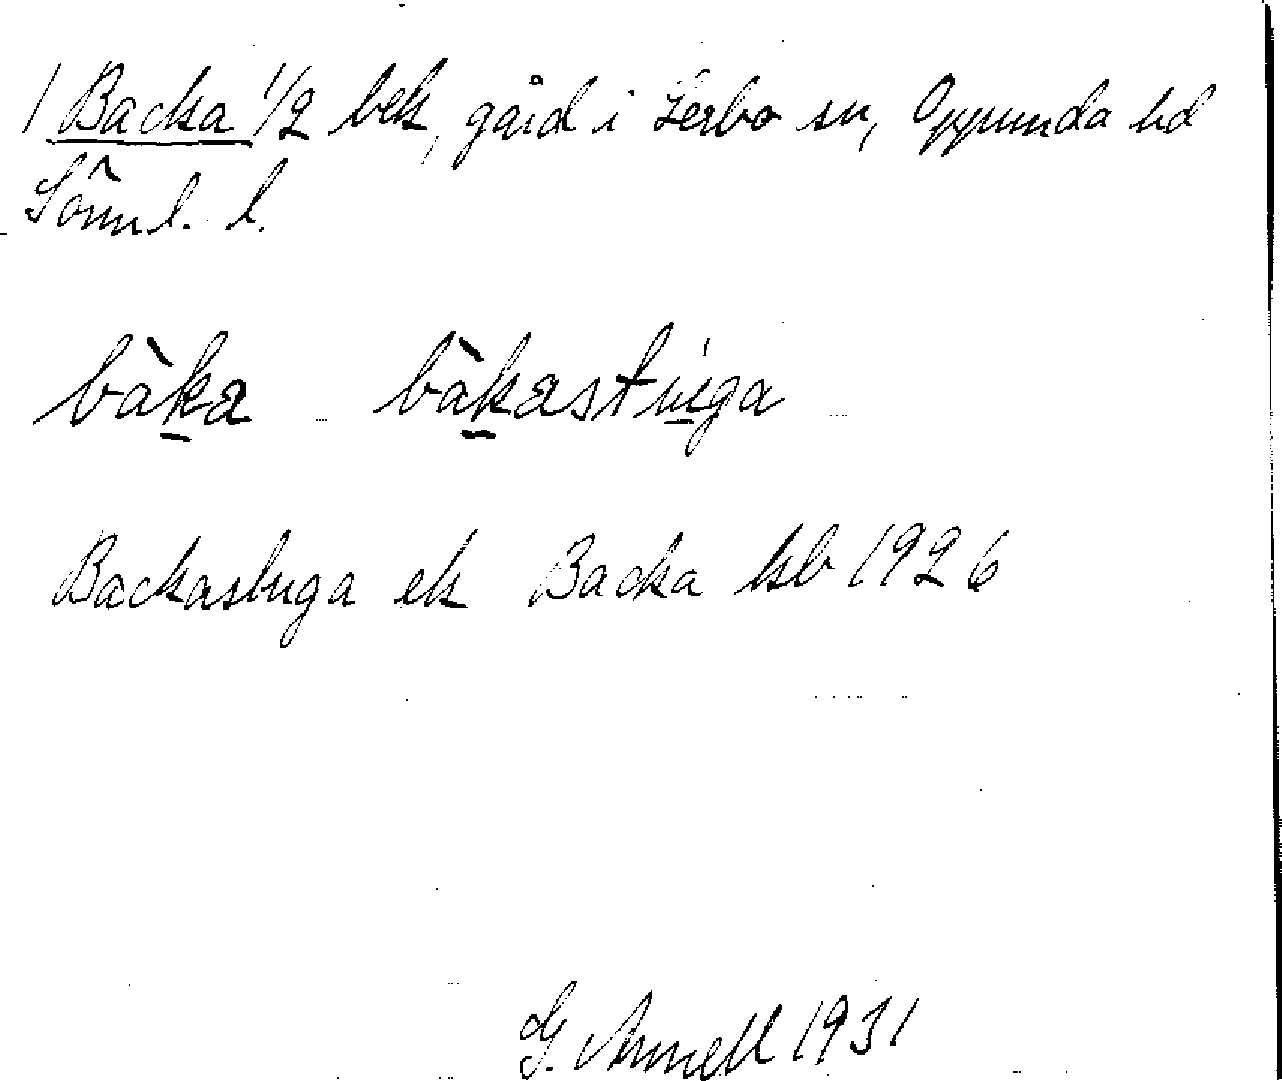 1 Backa 1/2 bek, gård i Lerbo sn, Oppunda hd
Söml. l.
bàka bàkastuga
Backastuga ek Backa hsb 1926
G. Armell 1931